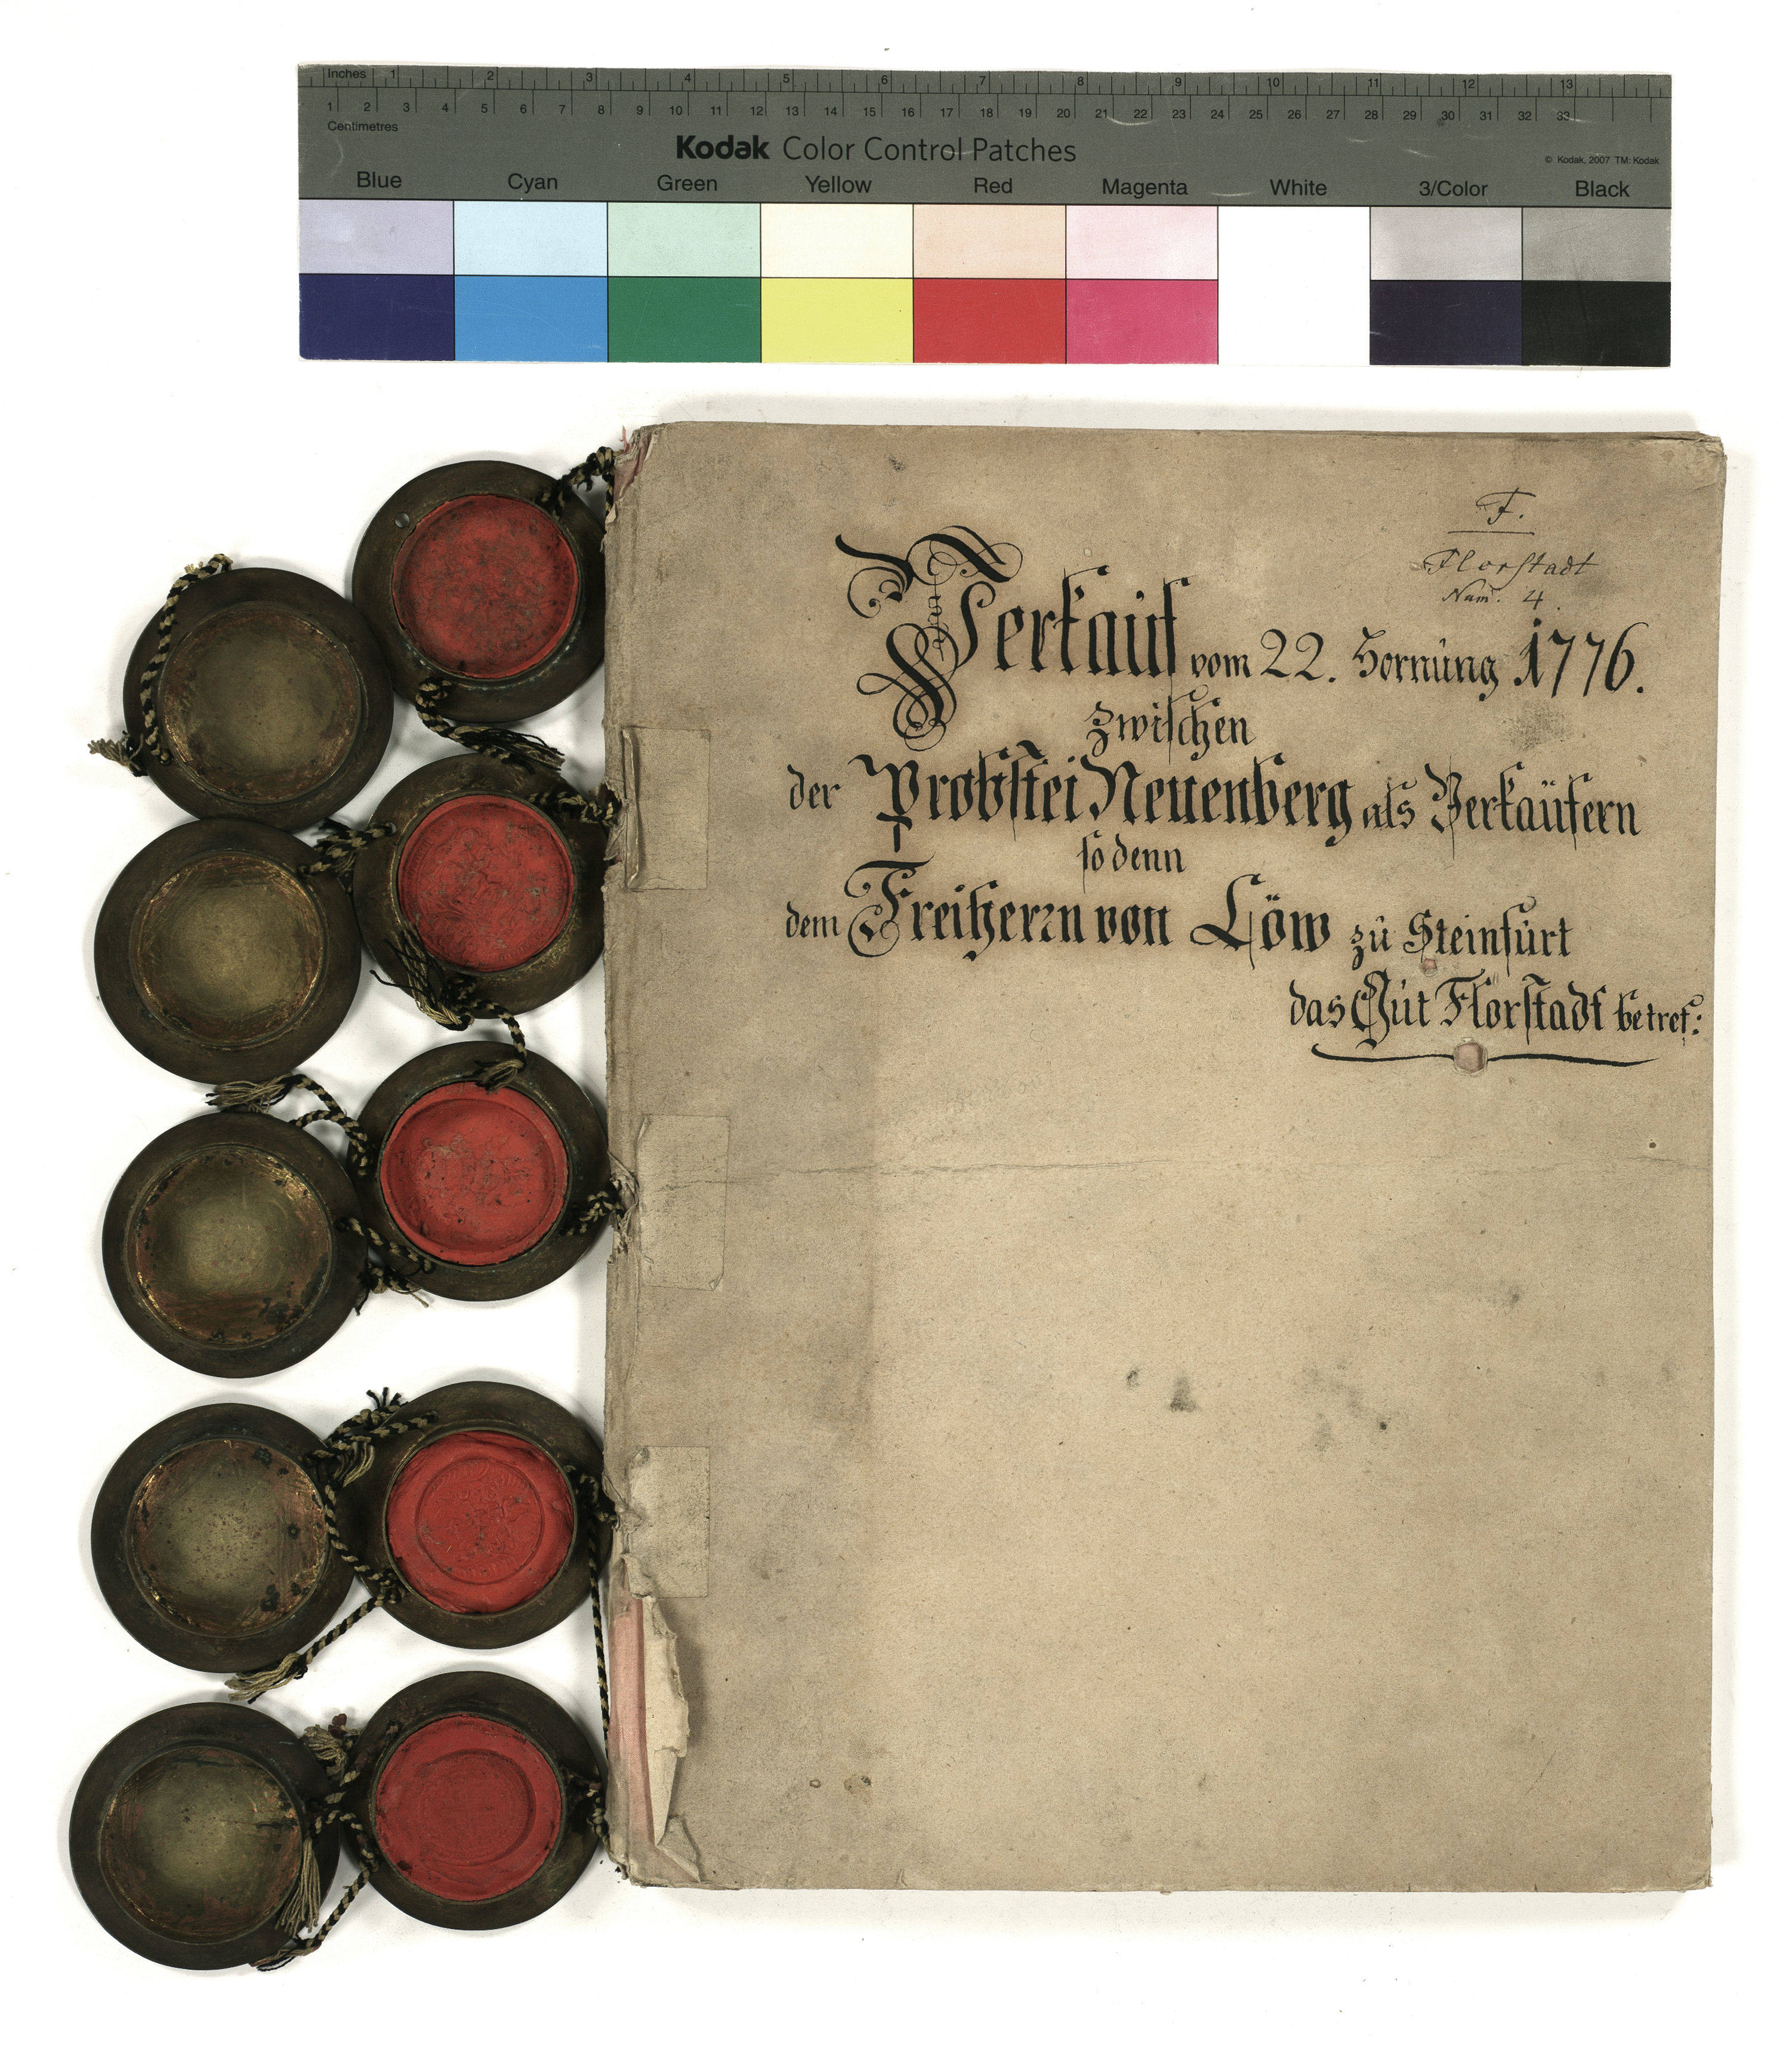 Inches 1 2 3 4 5 6 7 8 9 10 11 12 13
1 2 3 4 5 6 7 8 9 10 11 12 13 14 15 16 17 18 19 20 21 22 23 24 25 26 27 28 29 30 31 32 33
Centimetres
Kodak Color Control Patches
© Kodak, 2007 TM: Kodak
Blue Cyan Green Yellow Red Magenta White 3/Color Black
F.
Florstadt
Num. 4.
Verkauf vom 22. Hornung 1776.
zwischen
der Probstei Neuenberg als Verkäufern
sodenn
dem Freiherrn von Löw zu Steinfurt
das Gut Florstadt betref: